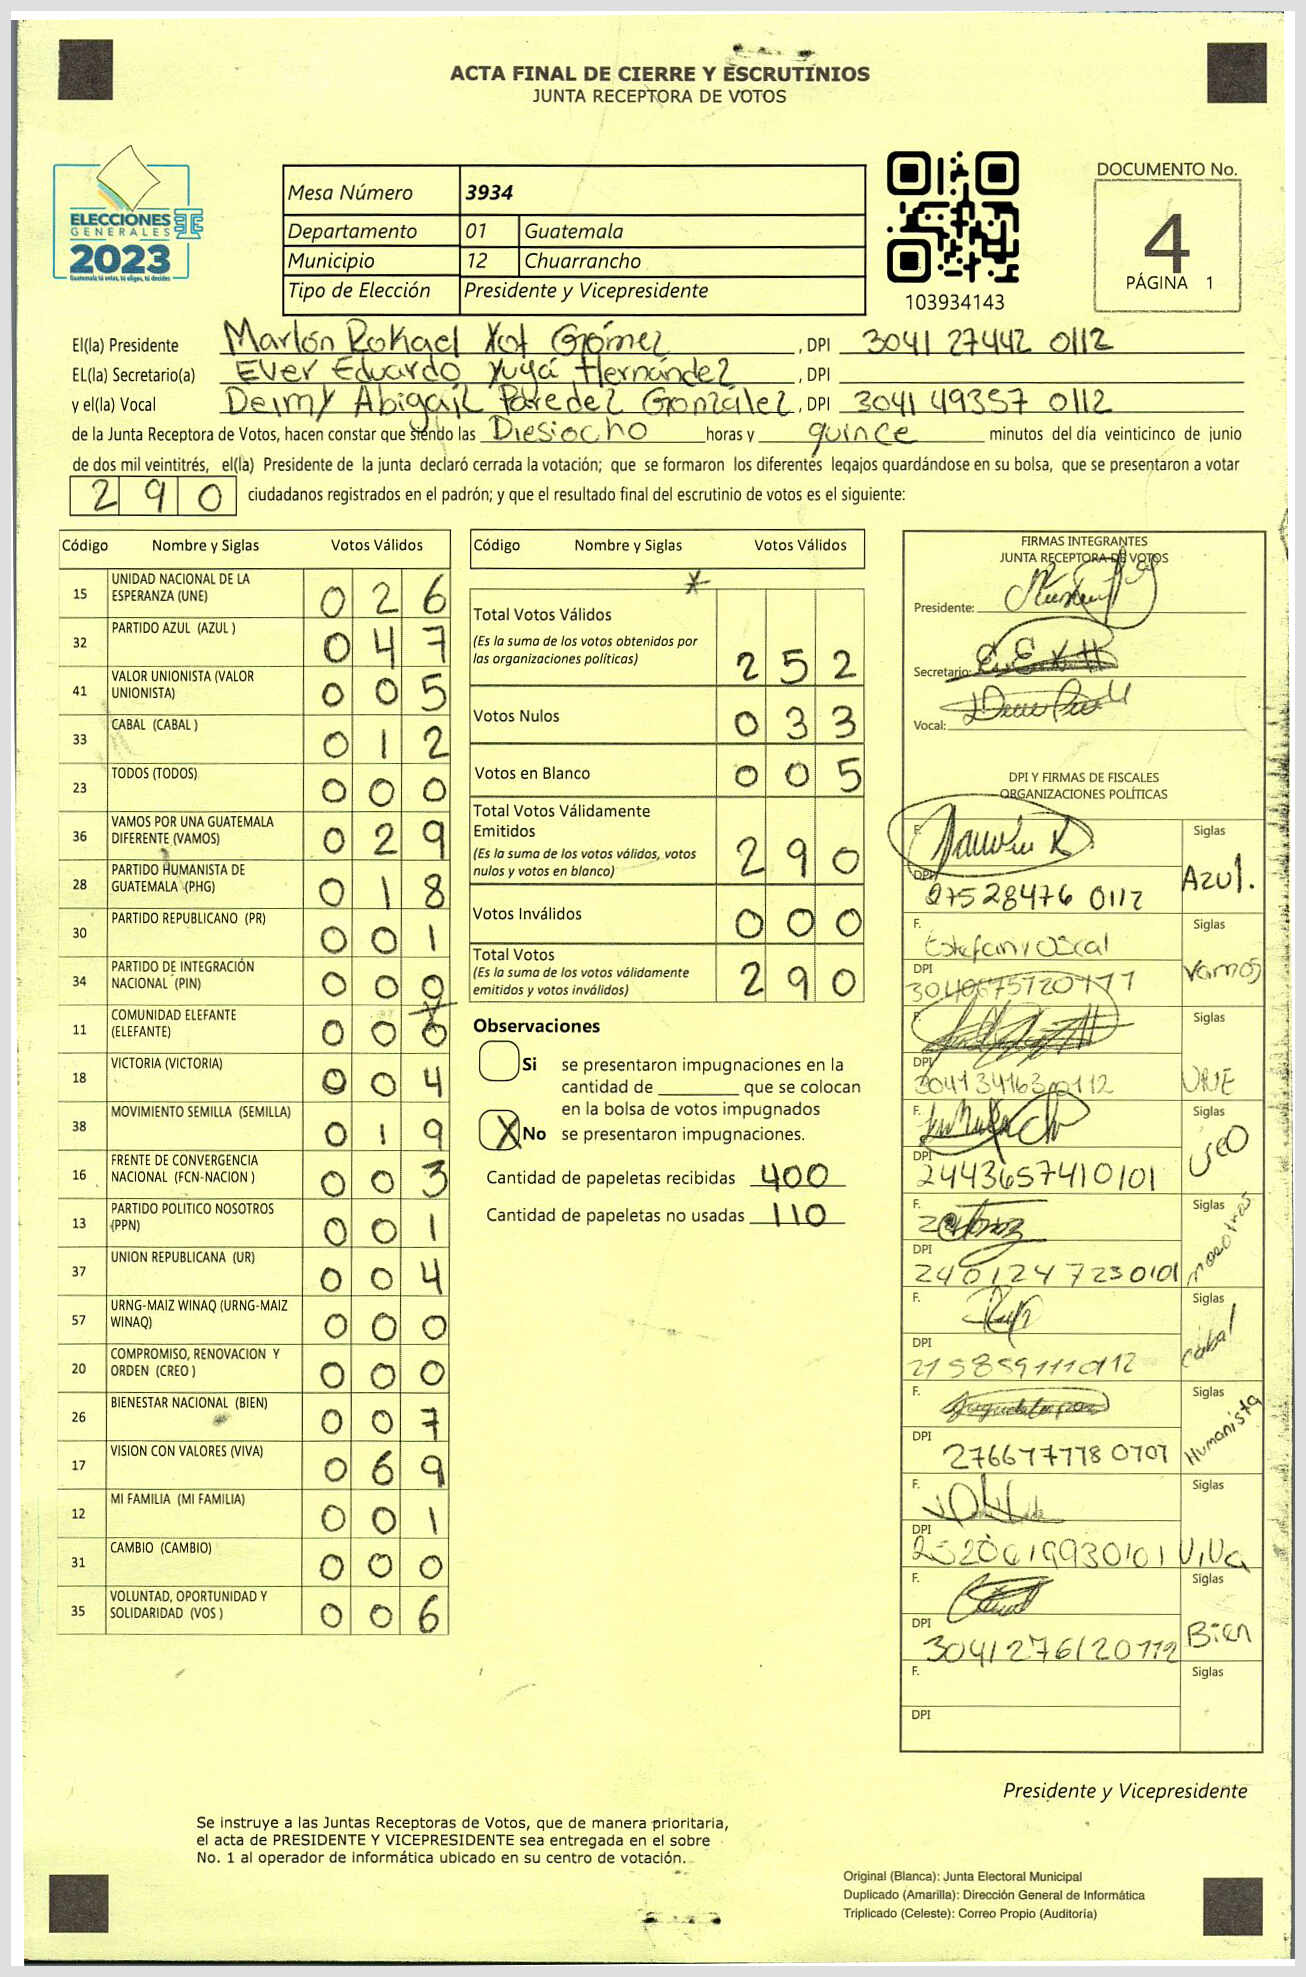 ACTA FINAL DE CIERRE Y ESCRUTINIOS
JUNTA RECEPTORA DE VOTOS
ELECCIONES
GENERALES
2023
Guatemala tú votas, tú eliges, tú decides
Mesa Número 3934
Departamento 01 Guatemala
Municipio 12 Chuarrancho
Tipo de Elección Presidente y Vicepresidente
103934143
DOCUMENTO No.
4
PÁGINA 1
El(la) Presidente Marlón Rokael Xot Gómez, DPI 3041 27442 0112
EL(la) Secretario(a) Ever Eduardo Yuyá Hernández, DPI
y el(la) Vocal Deimy Abigaíl Paredez González, DPI 3041 49357 0112
de la Junta Receptora de Votos, hacen constar que siendo las Diesiocho horas y quince minutos del día veinticinco de junio
de dos mil veintitrés, el(la) Presidente de la junta declaró cerrada la votación; que se formaron los diferentes legajos guardándose en su bolsa, que se presentaron a votar
290 ciudadanos registrados en el padrón; y que el resultado final del escrutinio de votos es el siguiente:
Código Nombre y Siglas Votos Válidos
15 UNIDAD NACIONAL DE LA ESPERANZA (UNE) 026
32 PARTIDO AZUL (AZUL ) 047
41 VALOR UNIONISTA (VALOR UNIONISTA) 005
33 CABAL (CABAL ) 012
23 TODOS (TODOS) 000
36 VAMOS POR UNA GUATEMALA DIFERENTE (VAMOS) 029
28 PARTIDO HUMANISTA DE GUATEMALA (PHG) 018
30 PARTIDO REPUBLICANO (PR) 001
34 PARTIDO DE INTEGRACIÓN NACIONAL (PIN) 000
11 COMUNIDAD ELEFANTE (ELEFANTE) 000
18 VICTORIA (VICTORIA) 004
38 MOVIMIENTO SEMILLA (SEMILLA) 019
16 FRENTE DE CONVERGENCIA NACIONAL (FCN-NACION ) 003
13 PARTIDO POLITICO NOSOTROS (PPN) 001
37 UNION REPUBLICANA (UR) 004
57 URNG-MAIZ WINAQ (URNG-MAIZ WINAQ) 000
20 COMPROMISO, RENOVACION Y ORDEN (CREO ) 000
26 BIENESTAR NACIONAL (BIEN) 007
17 VISION CON VALORES (VIVA) 069
12 MI FAMILIA (MI FAMILIA) 001
31 CAMBIO (CAMBIO) 000
35 VOLUNTAD, OPORTUNIDAD Y SOLIDARIDAD (VOS ) 006
Código Nombre y Siglas Votos Válidos
Total Votos Válidos
(Es la suma de los votos obtenidos por
las organizaciones políticas) 252
Votos Nulos 033
Votos en Blanco 005
Total Votos Válidamente
Emitidos
(Es la suma de los votos válidos, votos
nulos y votos en blanco) 290
Votos Inválidos 000
Total Votos
(Es la suma de los votos válidamente
emitidos y votos inválidos) 290
Observaciones
Si se presentaron impugnaciones en la
cantidad de ________ que se colocan
en la bolsa de votos impugnados
X No se presentaron impugnaciones.
Cantidad de papeletas recibidas 400
Cantidad de papeletas no usadas 110
FIRMAS INTEGRANTES
JUNTA RECEPTORA DE VOTOS
Presidente:
Secretario:
Vocal:
DPI Y FIRMAS DE FISCALES
ORGANIZACIONES POLÍTICAS
F. Siglas
DPI 27528476 0112 Azul.
F. Estefany Oscal Siglas
DPI Vamos
F. Siglas
DPI 3041341630112 UNE
F. Siglas
DPI 2443657410101
F. Siglas
DPI 2401247230101 nosotros
F. Siglas
DPI 2158591110112 Cabal
F. Siglas
DPI 276677778 0707 Humanista
F. Siglas
DPI 2520619930101 Viva
F. Siglas
DPI 3041276120112 Bien
F. Siglas
DPI
Presidente y Vicepresidente
Se instruye a las Juntas Receptoras de Votos, que de manera prioritaria,
el acta de PRESIDENTE Y VICEPRESIDENTE sea entregada en el sobre
No. 1 al operador de informática ubicado en su centro de votación.
Original (Blanca): Junta Electoral Municipal
Duplicado (Amarilla): Dirección General de Informática
Triplicado (Celeste): Correo Propio (Auditoría)